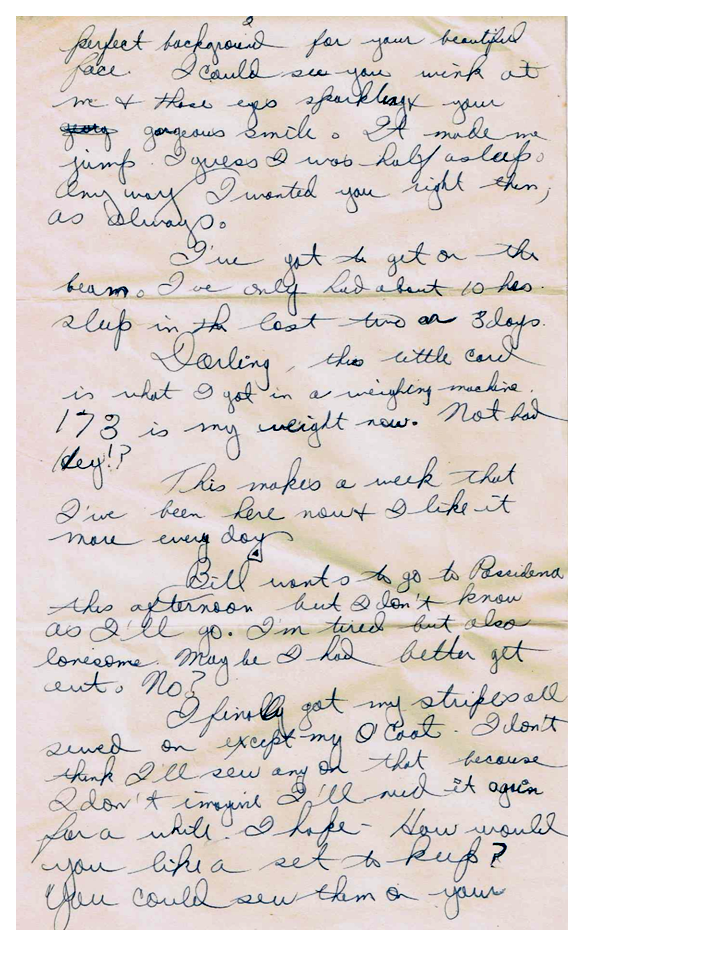 2
perfect background for your beautiful
face. I could see you wink at
me & those eyes sparkling & your
gorgeous smile. It made me
jump. I guess I was half asleep.
Any way I wanted you right then,
as always.
I've got to get on the
beam. I've only had about 10 hrs.
sleep in the last two or 3 days.
Darling, this little card
is what I got in a weighing machine.
173 is my weight now. Not bad
Hey!?
This makes a week that
I've been here now & I like it
more every day
Bill wants to go to Passidena
this afternoon but I don't know
as I'll go. I'm tired but also
lonesome. May be I had better get
out. No?
I finally got my stripes all
sewed on except my O'Coat. I don't
think I'll sew any on that because
I don't imagine I'll need it again
for a while. I hope - How would
you like a set to keep?
You could sew them on your